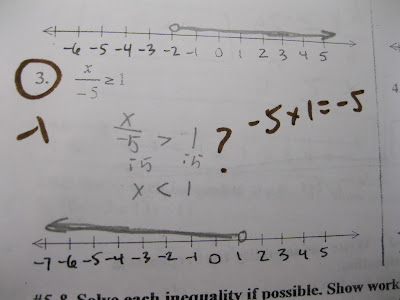 -6 -5 -4 -3 -2 -1 0 1 2 3 4 5
3. x/-5 ≥ 1
-1
x/-5 > 1 ? -5 x 1 = -5
÷5 ÷5
x < 1
-7 -6 -5 -4 -3 -2 -1 0 1 2 3 4 5
4
#5-8 Solve each inequality if possible. Show work